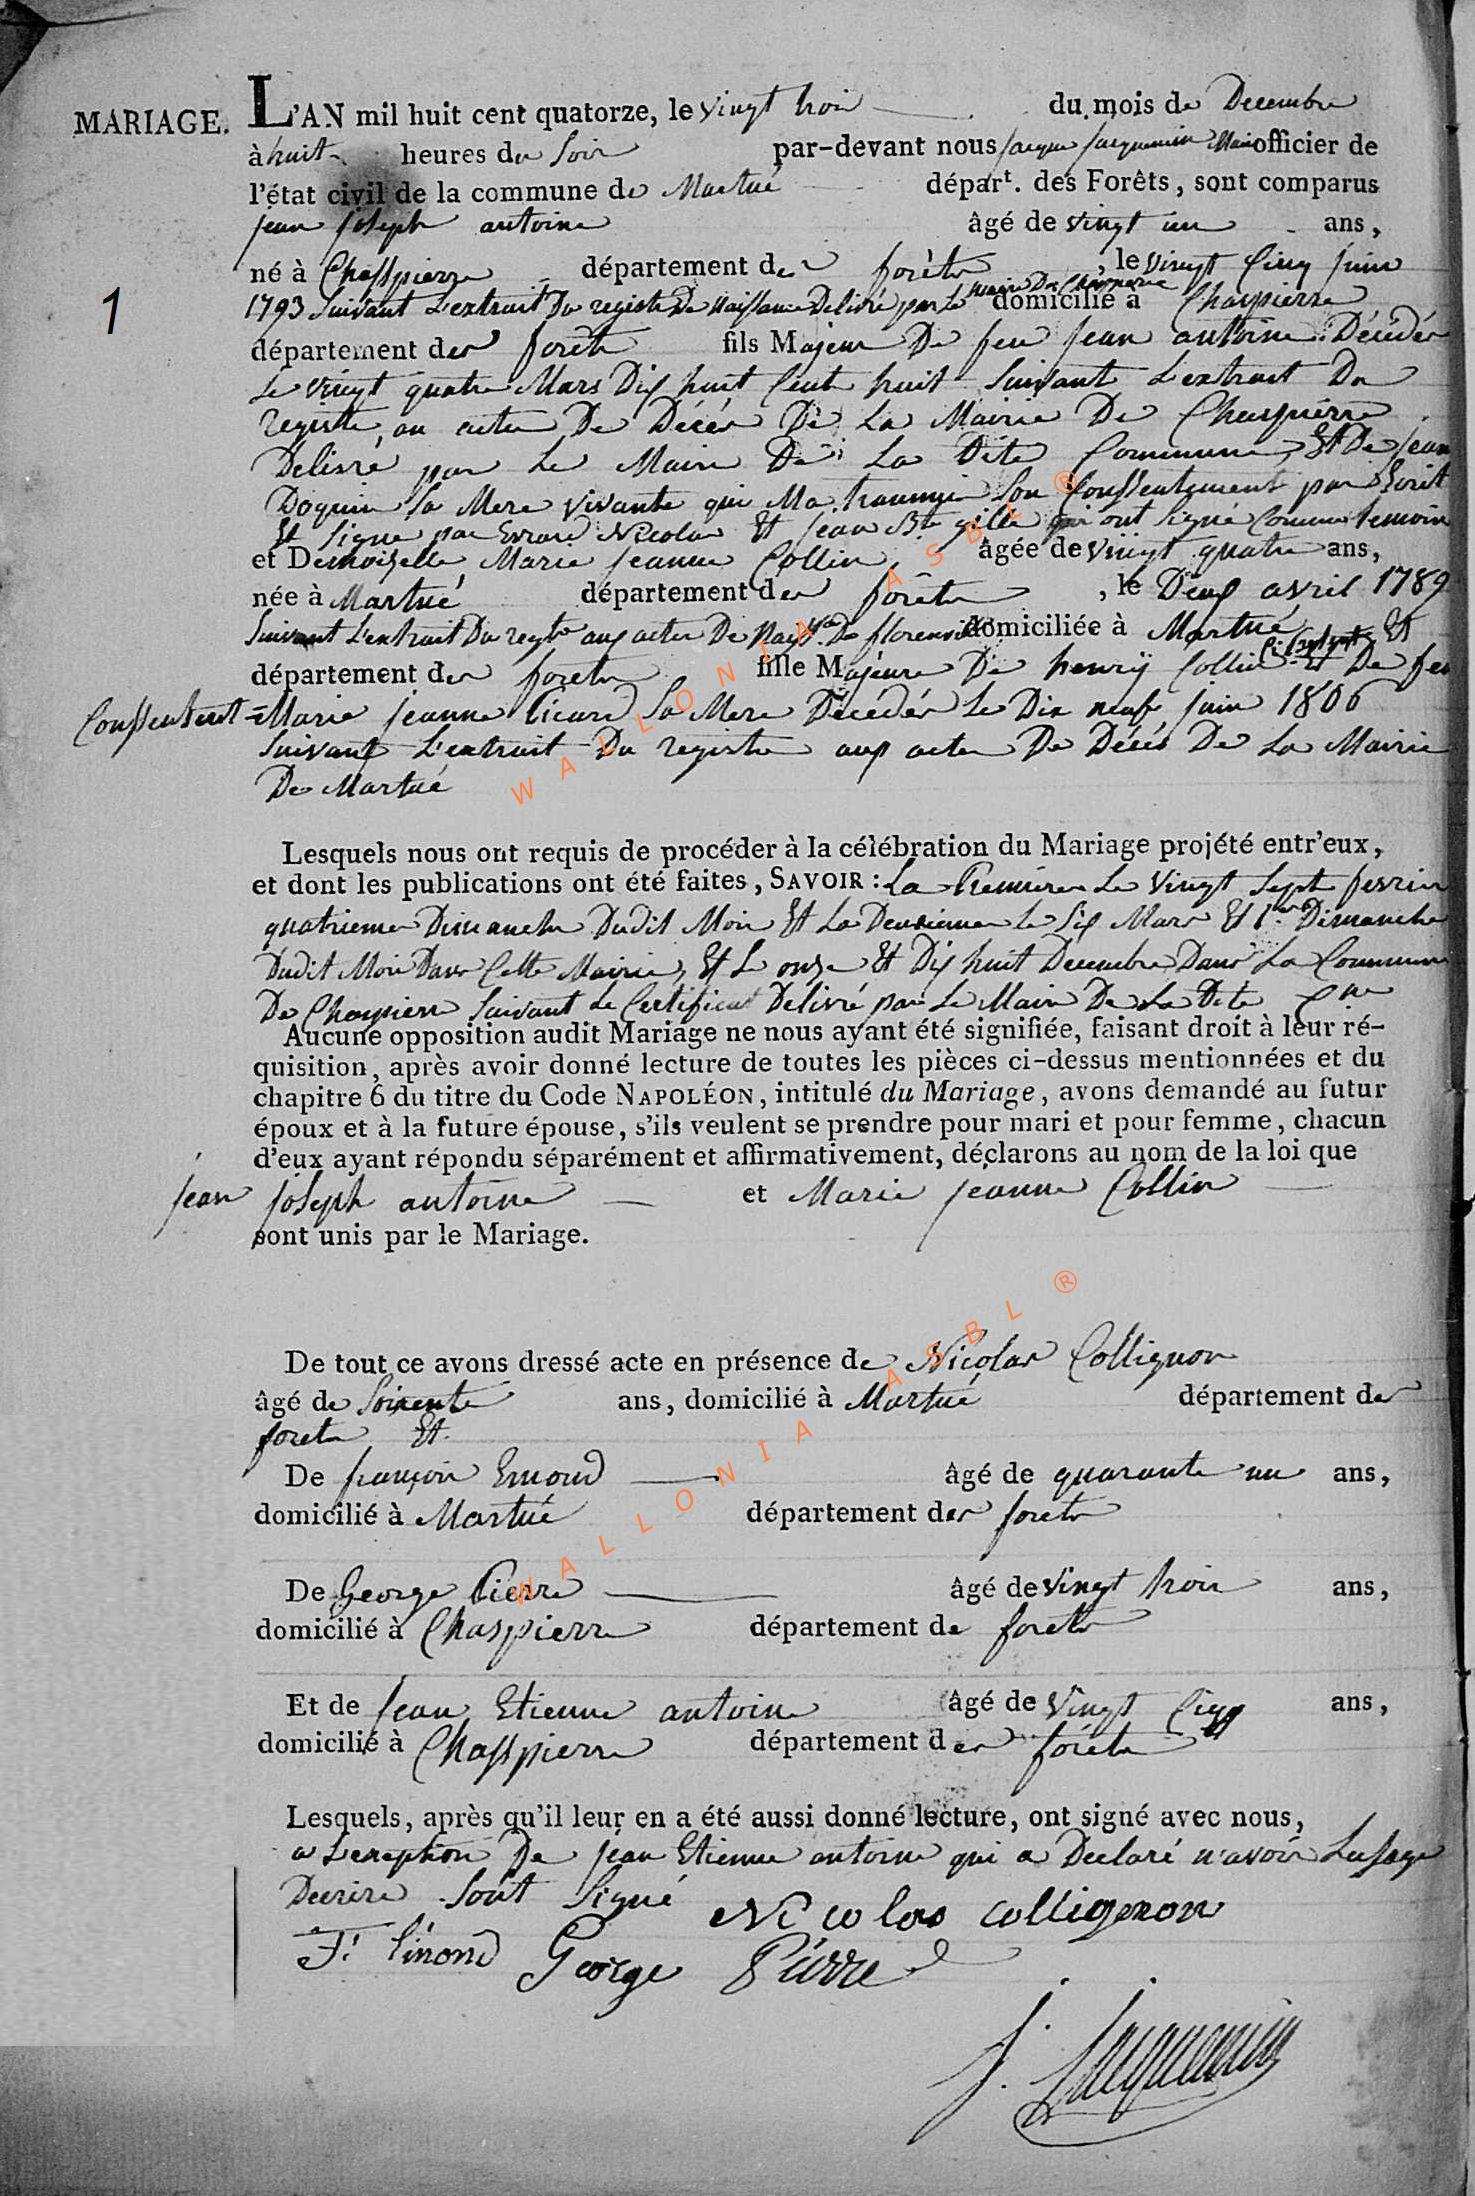 MARIAGE. L'AN mil huit cent quatorze, le vingt trois du mois de Decembre
à huit heures du Soir par-devant nous jacque jacquemin Maire officier de
l'état civil de la commune de Martué départ. des Forêts, sont comparus
jean joseph antoine âgé de vingt un ans,
né à Chasspierre département des forêts, le vingt Cinq juin
1793 suivant L'extrait Du registre De Naissance Delivré par Le Maire De Chaspierre domicilié à Chaspierre
1
département des forêts fils Majeur De feu jean antoine Décédés
Le vingt quatre Mars Dix huit Cent huit suivant L'extrait Du
registre au actes De Décès De La Mairie De Chaspierre
Delivré par Le Maire De La Dite Commune, Et De jean
Doquin Sa Mere vivante qui Ma Son Conssentement par Ecrit
Et signe par Errard Nicolas Et jean Bte gille qui ont signé Comme temoin
et Demoiselle Marie jeanne Collin âgée de vingt quatre ans,
née à Martué département des forêts, le Deux avril 1789
Suivant L'extrait Du regtre aux actes De De florenville domiciliée à Martué
département des forets fille Majeure De henry Collin Et De feu
Conssentent = Marie jeanne Picard Sa Mere Décédés Le Dix neuf juin 1806
suivant L'extrait Du registre aux actes De Décès De La Mairie
De Martué
Lesquels nous ont requis de procéder à la célébration du Mariage projété entr'eux,
et dont les publications ont été faites, SAVOIR : La Premiere Le vingt sept fevrier
quatrieme Dimanche Dudit Mois Et La Deuxieme Le Six Mars Et 1er Dimanche
Dudit Mois Dans Cette Mairie, Et Le onze Et Dix huit Decembre Dans La Commune
De Chaspierre suivant Le Certificat Delivré par Le Maire De La Dite Cne
Aucune opposition audit Mariage ne nous ayant été signifiée, faisant droit à leur ré-
quisition, après avoir donné lecture de toutes les pièces ci-dessus mentionnées et du
chapitre 6 du titre du Code NAPOLÉON, intitulé du Mariage, avons demandé au futur
époux et à la future épouse, s'ils veulent se prendre pour mari et pour femme, chacun
d'eux ayant répondu séparément et affirmativement, déclarons au nom de la loi que
jean joseph antoine et Marie jeanne Collin
sont unis par le Mariage.
De tout ce avons dressé acte en présence de Nicolas Collignon
âgé de Soixente ans, domicilié à Martué département des
forets Et
De françois Emond âgé de quarante un ans,
domicilié à Martué département des forets
De George Pierre âgé de vingt trois ans,
domicilié à Chaspierre département de forets
Et de jean Etienne antoine âgé de vingt Cinq ans,
domicilié à Chasspierre département des forêts
Lesquels, après qu'il leur en a été aussi donné lecture, ont signé avec nous,
a L'exeption De jean Etienne antoine qui a Declaré n'avoir Lusage
Decrire sont signé Nicolas collignon
F: Emond George Pierre
J. Jacquemin
WALLONIA ASBL ®
WALLONIA ASBL ®